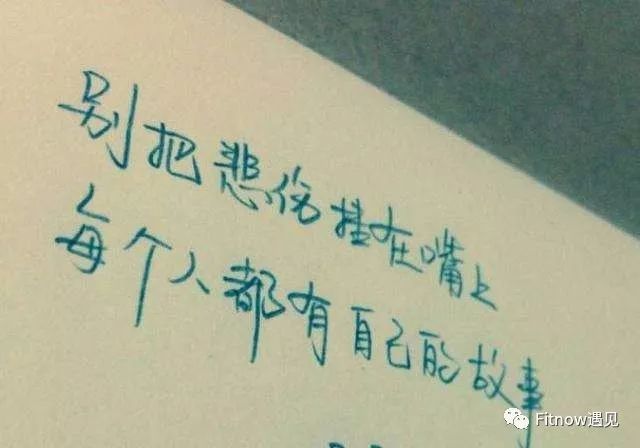 别把悲伤挂在嘴上
每个人都有自己的故事
Fitnow遇见